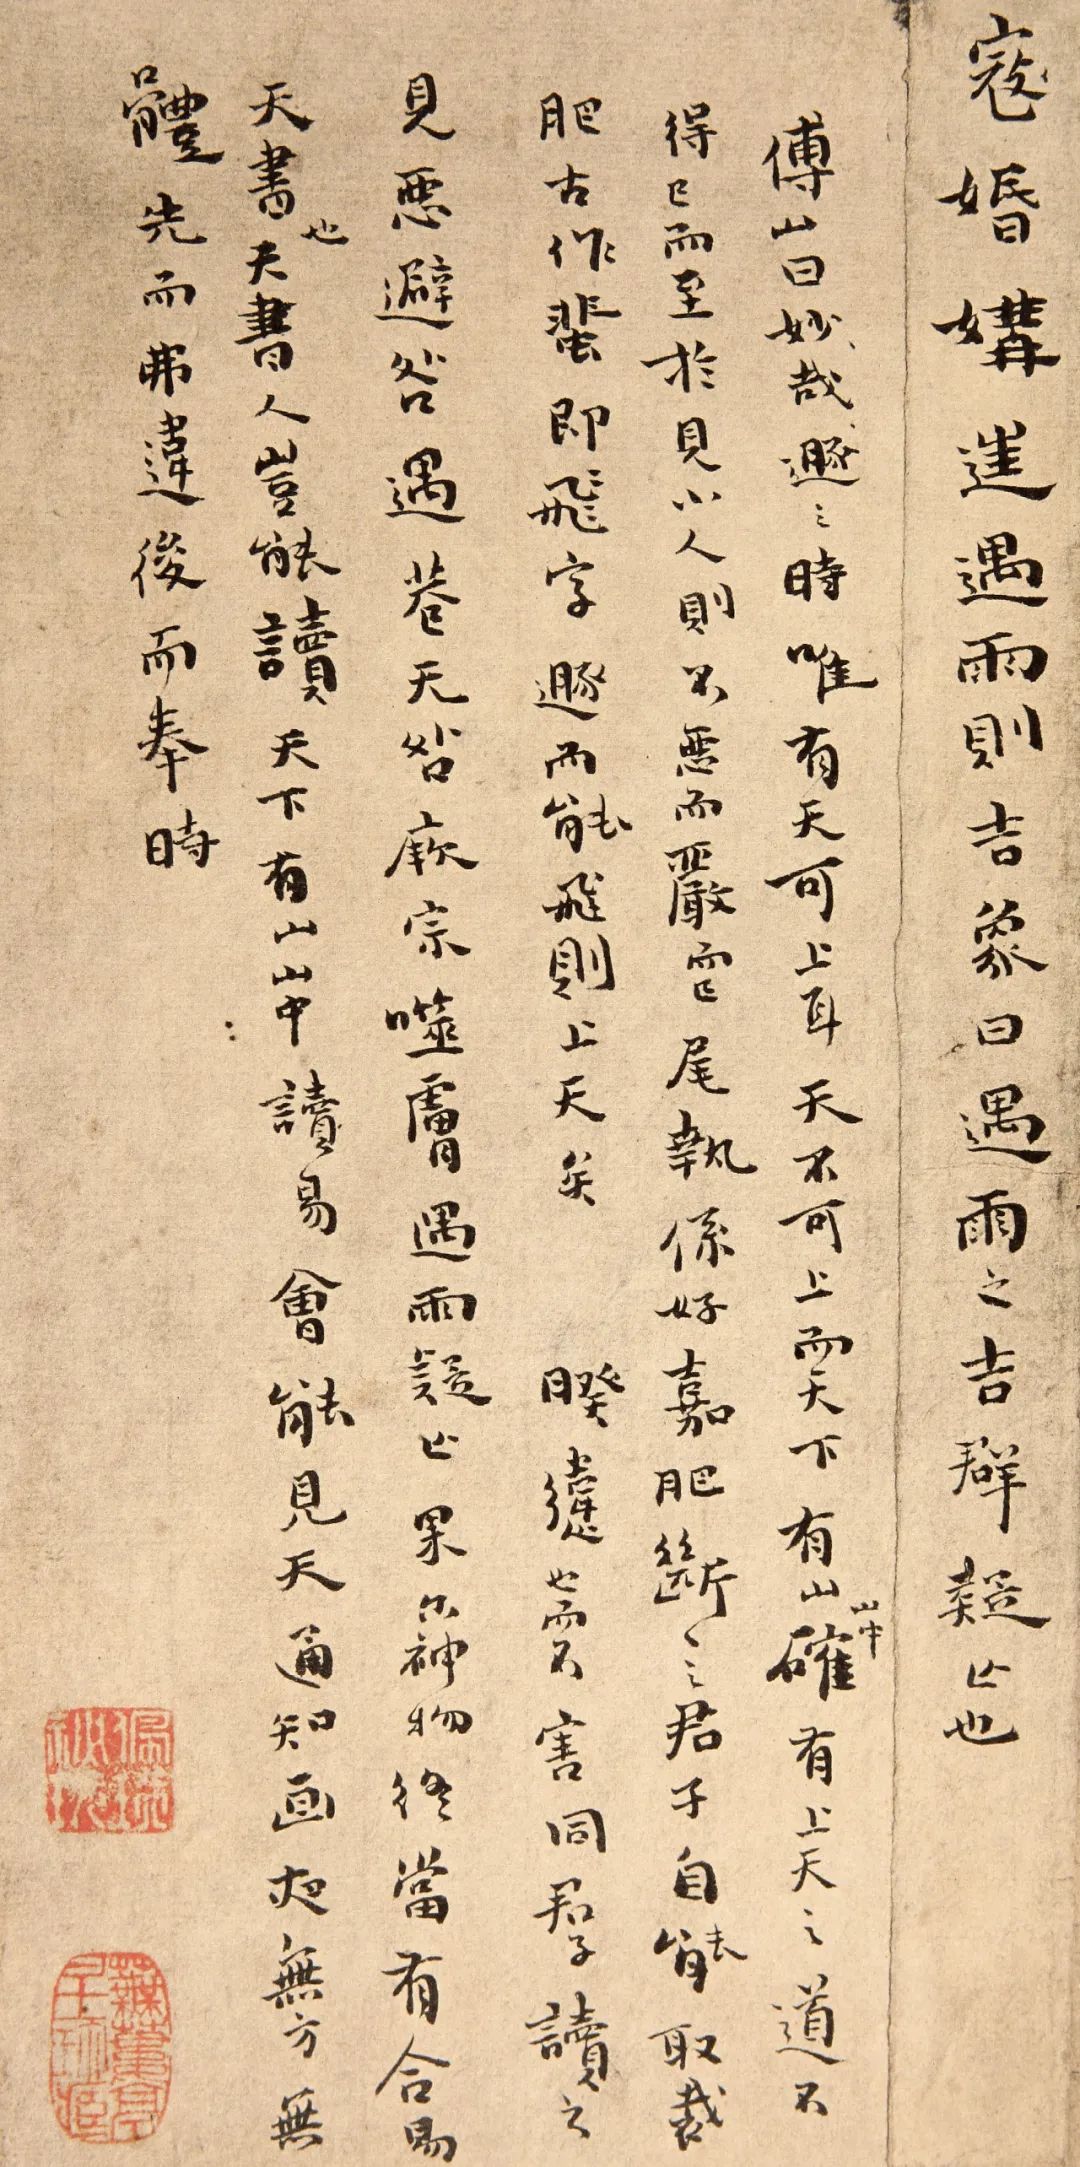 寇婚媾進遇雨則吉象曰遇雨之吉群疑亡也
傅山曰妙哉遯之時唯有天可上耳天不可上而天下有山山中確有上天之道不
得已而至於見小人則不惡而嚴而已尾執係好嘉肥斷斷之君子自能取裁
肥古作蜚即飛字遯而能飛則上天矣 睽違也而不害同君子讀之
見惡避咎遇巷无咎厥宗噬膚遇雨疑亡果尔神物終當有合易
天書也天書人豈能讀天下有山山中讀易會能見天通知畫夜無方無
體先而弗違後而奉時